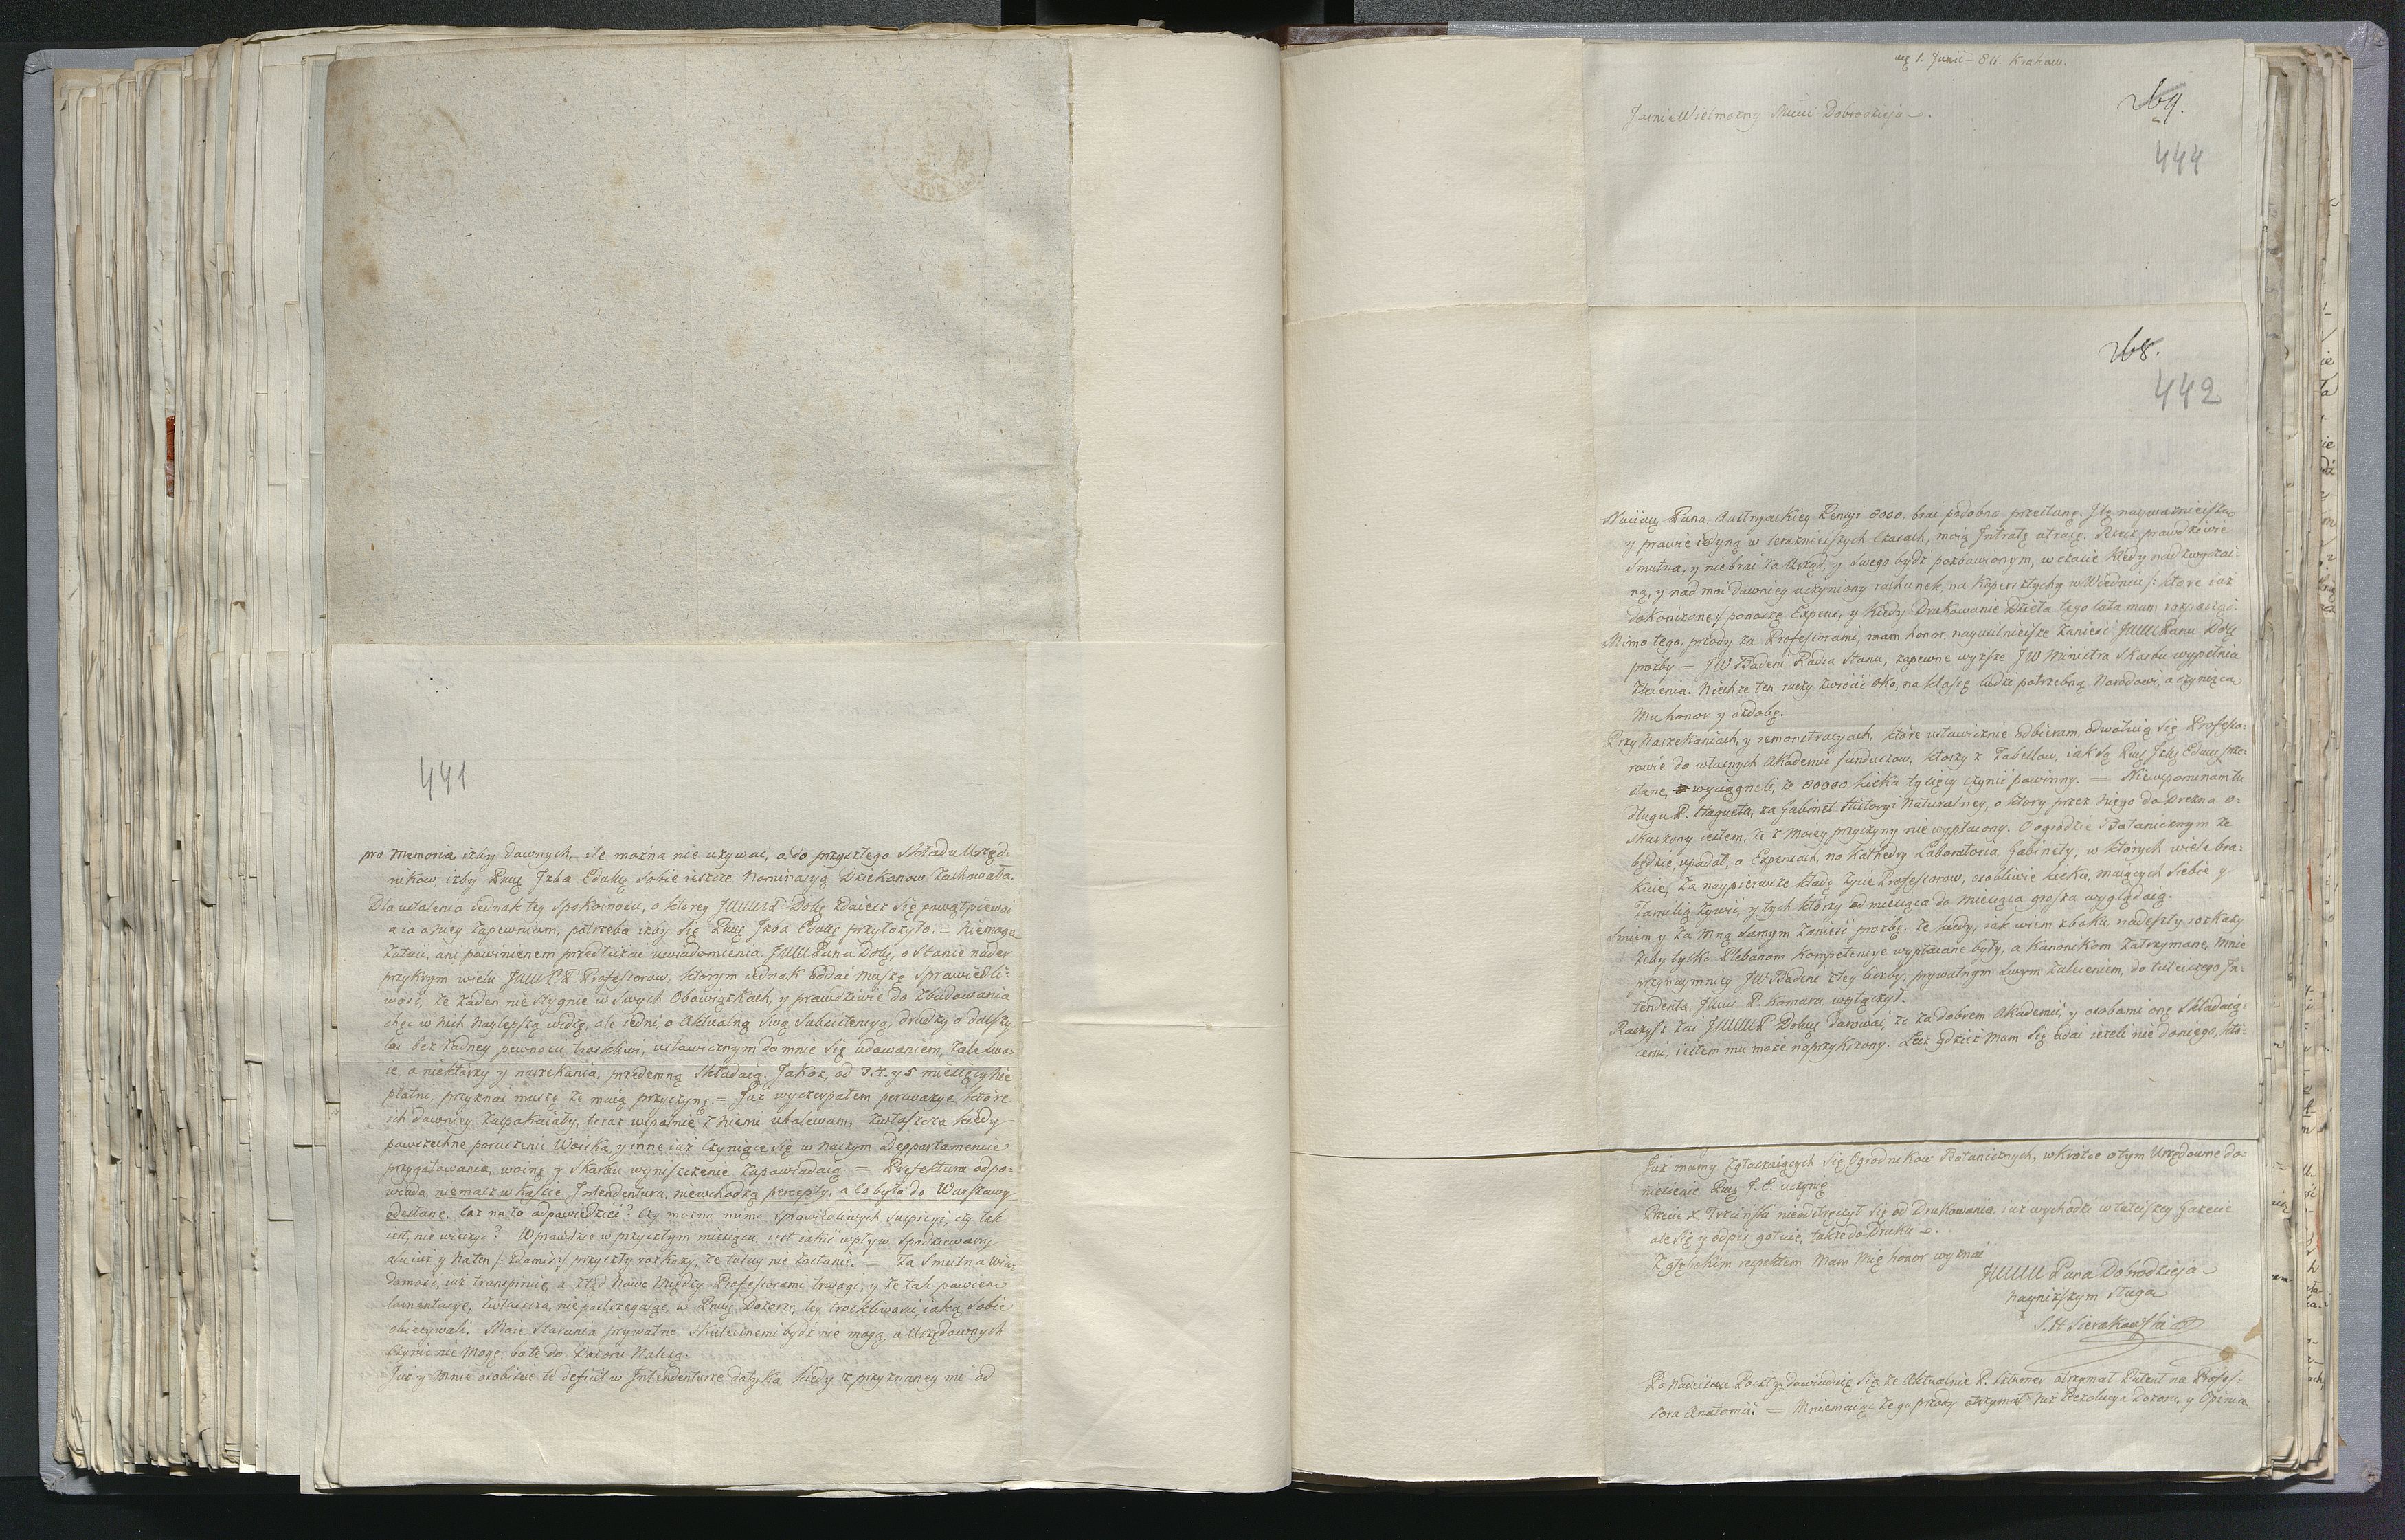 441
pro memoria izby dawnych, ile można nie używać, a do przyszłego Składu Urzęd-
ników, izby Izba Edukc sobie ieszcze Nominacyą Dziekanow zachowała.
Dla ustalenia iednak tey spokoiności, o ktorey JWWP Dobg zdaiesz się powątpiewać
a ia o niey zapewniam, potrzeba izby się Izba przyłożyła. = Niemogę
zataić, ani powinienem przedłużać uwiadomienia JWW Pana Dobg, o stanie nader
przykrym wielu JWW P.P. Professorow, ktorym iednak oddać muszę sprawiedli-
wość, że żaden nie stygnie w swych Obowiązkach, y prawdziwie do zbudowania
chęć w nich naylepszą widzę, ale iedni o Aktualną swą Subsistencyą, drudzy o dalszy
los bez żadney pewności troskliwi, ustawicznym do mnie się udawaniem, żale swo-
ie, a niektorzy y narzekania, przedemną składaią. Jakoż, od 3. 4. y 5 miesięcy nie
płatni, przyznać muszę że maią przyczynę. = Już wyczerpałem perswazye ktore
ich dawniey zaspokaiały, teraz wspolnie z niemi ubolewam, zwłaszcza kiedy
powszechne poruszenie Woiska, y inne iuż czyniące się w naszym Deppartamencie
przygotowania, woinę y Skarbu wyniszczenie zapowiadaią = Prefektura odpo-
wiada, niemasz w Kassie Intendentura, niewchodzą percepty, a co było do Warszawy
odesłane. Coż na to odpowiedzieć? Czy można mimo sprawiedliwych suspicyi, czy tak
iest, nie wierzyć? Wprawdzie w przyszłym miesiącu, iest iakiś wpływ spodziewany
ale iuż y na ten przyszły rozkazy, że tutay nie zostanie. = Ta smutna wia-
domość, iuż transpiruie, a ztąd nowe między Professorami trwogi, y że tak powiem
lamentacye, zwłaszcza, nie postrzegaiąc w Dozorze, tey troskliwości, iaką sobie
obiecywali. Moie starania prywatne skutecznemi bydź nie mogą, a Urzędowych
czynić nie mogę, bo te do Dozoru należą.
Już y mnie osobiście te deficit w Intendenturze dotyka kiedy z przyznaney mi od
1. Junii Krakow.
Jaśnie Wielmożny Mości Dobrodzieju.
269.
444
268.
442
Pana, Austryackiey Pensyi 8000, brać podobno przestanę. Jtę nayważnieyszą
y prawie iedyną w teraznieyszych czasach, moią Intratę utracę. Rzecz prawdziwie
smutna, y nie brać za Urząd, y swego bydź pozbawionym, w czasie kiedy nadzwyczai-
ną, y nad moi dawniey uczyniony rachunek, na Kopersztychy w Wiedniu ktore iuż
dokończone ponoszę Expens, y kiedy Drukowanie Dzieła tego lata mam rozpocząć.
Mimo tego, przody za Professorami, mam honor nayusilnieysze zanieść JWW Panu Dobg
prośby = JW Badeni Radca Stanu, zapewne wyższe JW Ministra Skarbu wypełnia
zlecenia. Niechże ten raczy zwrócić oko, na klassę ludzi potrzebną Narodowi, a czyniącą
mu honor y ozdobę.
Przy narzekaniach, y remonstracyach, które ustawicznie odbieram, odwołuią się Professo-
rowie do własnych Akademii funduszow, ktorzy z Tabellow, iak są prze-
słane, wyciągneli, że 80000 kilka tysięcy czynić powinny. = Niewspominam tu
długu P. Haqueta, za Gabinet Historyi Naturalney, o ktory przez niego do Drezna o-
skarżony iestem, że z moiey przyczyny nie wypłacony. O ogrodzie Botanicznym że
będzie, upadał, o Expensach, na Kathedry Laboratoria Gabinety, w których wiele bra-
kuie, za naypierwsze kładę życie Professorow, osobliwie kilku, maiących siebie y
familią żywić, y tych ktorzy od miesiąca do miesiąca grosza wyglądaią.
Smiem y za mną samym zanieść prośbę. że kiedy, iak wiem z boku, nadeszły rozkazy
żeby tylko Plebanom kompetencye wypłacane były, a Kanonikom zatrzymane, mnie
przynaymniey JW Badeni z tey liczby, prywatnym swym zaleceniem, do tuteiszego In-
tendenta, P. Komara, wyłączył.
Raczysz zaś JWWP Dobg darować, że za dobrem Akademii, y osobami onę składaią-
cemi, iestem mu może naprzykrzony. Lecz gdzież mam się udać ieżeli nie do niego, kto-
Już mamy zgłaszaiących się Ogrodnikow Botanicznych, wkrótce o tym Urzędowne do-
niesienie uczynię.
X Trzciński nieodstręczył się od Drukowania, iuż wychodzi w tuteiszey Gazecie
ale się y odpis gotuie, także do Druku.
Z głębokim respektem mam mię honor wyznać
JWWW Pana Dobrodzieja
naynizszym sługą
S. H. Sierakowski
Po nadeiściu Poczty, dowiaduię się że Aktualnie P. otrzymał Patent na Profes-
sora Anatomii. = Mniemaiąc że go przody otrzymał niż Rezolucya Dozoru, y Opinia